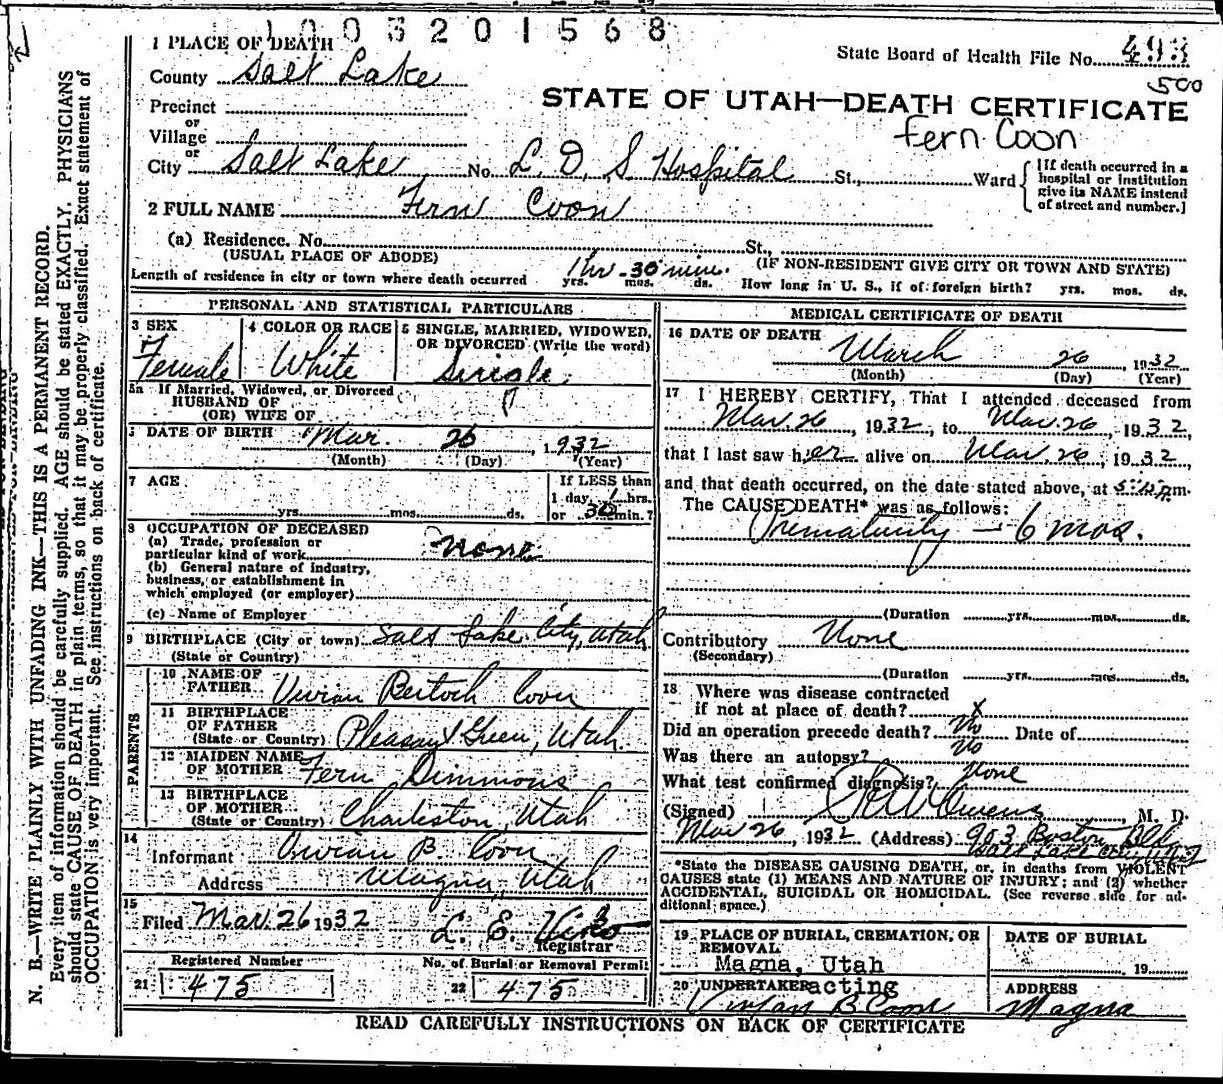 1003201568
State Board of Health File No. 493
500
STATE OF UTAH—DEATH CERTIFICATE
Fern Coon
1 PLACE OF DEATH
County Salt Lake
Precinct
or
Village
or
City Salt Lake No. L. D. S Hospital St., Ward
[If death occurred in a
hospital or institution
give its NAME instead
of street and number.]
2 FULL NAME Fern Coon
(a) Residence. No. St.,
(USUAL PLACE OF ABODE) (IF NON-RESIDENT GIVE CITY OR TOWN AND STATE)
Length of residence in city or town where death occurred 1 hr - 30 min. yrs. mos. ds. How long in U. S., if of foreign birth? yrs. mos. ds.
PERSONAL AND STATISTICAL PARTICULARS
3 SEX
Female
4 COLOR OR RACE
White
5 SINGLE, MARRIED, WIDOWED,
OR DIVORCED (Write the word)
Single
5a If Married, Widowed, or Divorced
HUSBAND OF
(OR) WIFE OF
DATE OF BIRTH Mar. 26, 1932
(Month) (Day) (Year)
7 AGE
yrs. mos. ds.
If LESS than
1 day, 1 hrs.
or 30 min.?
8 OCCUPATION OF DECEASED
(a) Trade, profession or
particular kind of work None
(b) General nature of industry,
business, or establishment in
which employed (or employer)
(c) Name of Employer
9 BIRTHPLACE (City or town) Salt Lake City, Utah
(State or Country)
PARENTS
10 NAME OF
FATHER Vivian Bertoch Coon
11 BIRTHPLACE
OF FATHER
(State or Country) Pleasant Green, Utah
12 MAIDEN NAME
OF MOTHER Fern Simmons
13 BIRTHPLACE
OF MOTHER
(State or Country) Charleston, Utah
14
Informant Vivian B. Coon
Address Magna, Utah
15
Filed Mar 26 1932 L. E.
Registrar
Registered Number
21 475
No. of Burial or Removal Permit
22 475
MEDICAL CERTIFICATE OF DEATH
16 DATE OF DEATH
March 26, 1932
(Month) (Day) (Year)
17 I HEREBY CERTIFY, That I attended deceased from
Mar. 26, 1932, to Mar. 26, 1932,
that I last saw her alive on Mar. 26, 1932,
and that death occurred, on the date stated above, at m.
The CAUSE DEATH* was as follows:
Prematurity — 6 mos.
(Duration yrs. mos. ds.
Contributory None
(Secondary)
(Duration yrs. mos. ds.
18 Where was disease contracted
if not at place of death? X
Did an operation precede death? No Date of
Was there an autopsy? No
What test confirmed diagnosis? None
(Signed) Owens, M. D.
Mar 26, 1932 (Address) 903 Boston Bld
Salt Lake City
*State the DISEASE CAUSING DEATH, or, in deaths from VIOLENT
CAUSES state (1) MEANS AND NATURE OF INJURY; and (2) whether
ACCIDENTAL, SUICIDAL OR HOMICIDAL. (See reverse side for ad-
ditional space.)
19 PLACE OF BURIAL, CREMATION, OR
REMOVAL
Magna, Utah
DATE OF BURIAL
19
20 UNDERTAKER acting
Vivian B Coon
ADDRESS
Magna
READ CAREFULLY INSTRUCTIONS ON BACK OF CERTIFICATE
N. B.—WRITE PLAINLY WITH UNFADING INK—THIS IS A PERMANENT RECORD.
Every item of information should be carefully supplied. AGE should be stated EXACTLY. PHYSICIANS
should state CAUSE OF DEATH in plain terms, so that it may be properly classified. Exact statement of
OCCUPATION is very important. See instructions on back of certificate.